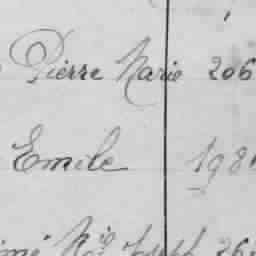 Pierre Marie 206
Emile 198
Joseph 26